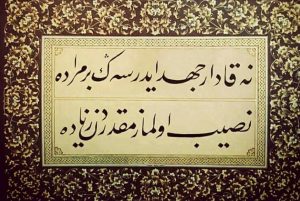 نه قادار جهد ايدرسه ڭ بر مراده
نصيب اولماز مقدردن زياده